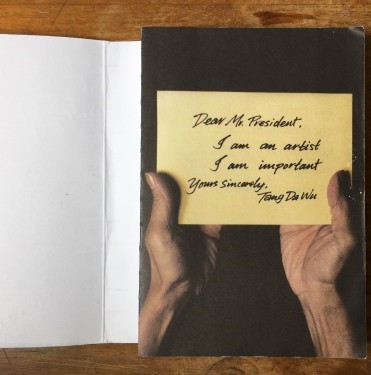 Dear Mr. President.
I am an artist
I am important
Yours sincerely,
Tang Da Wu